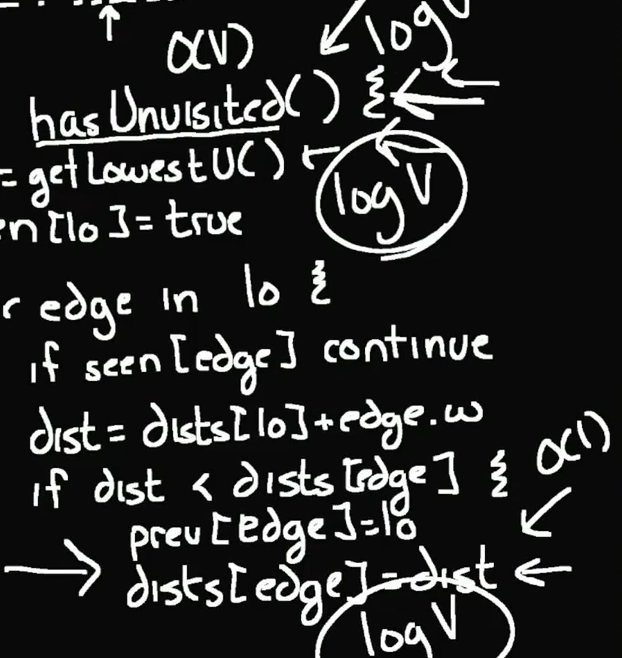 O(V)
log V
hasUnvisited() {
= getLowestU()
log V
en[lo] = true
r edge in lo {
if seen[edge] continue
dist = dists[lo] + edge.w
O(1)
if dist < dists[edge] {
prev[edge] = lo
dists[edge] = dist
log V